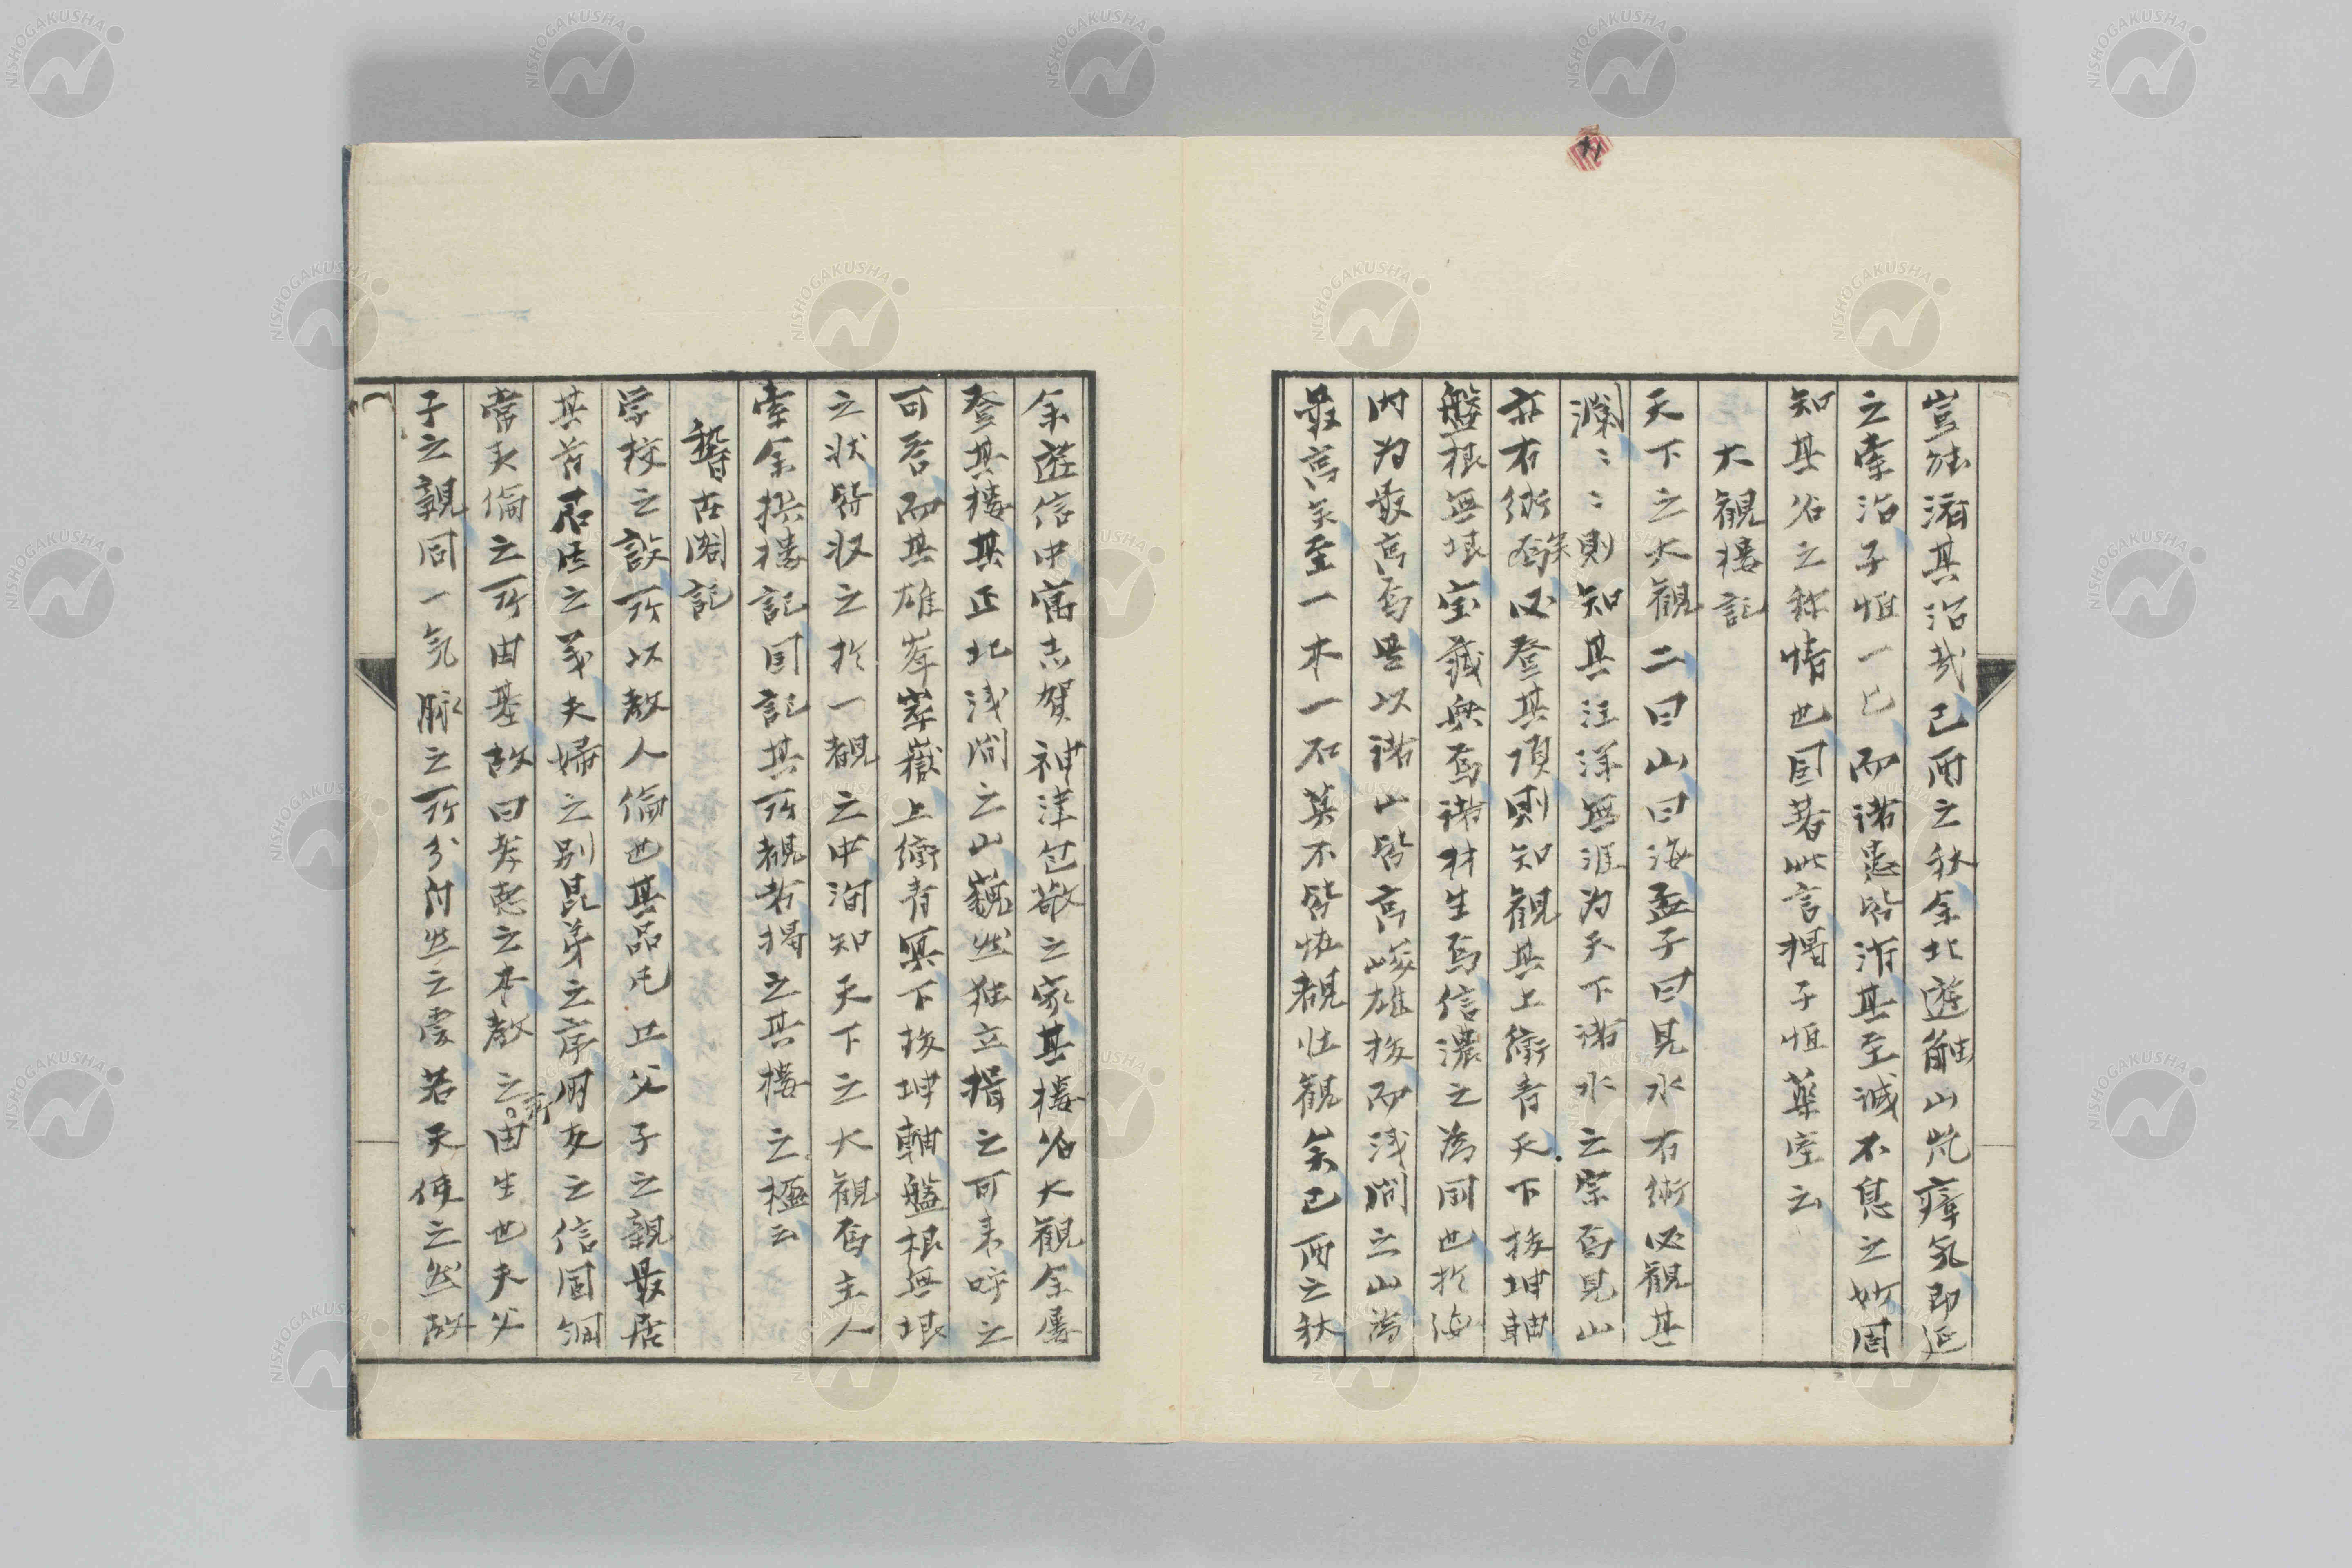 豈能済其沼哉己酉之秋余北遊触山荒瘴気即延
之牽沿子恒一已而諸患皆済其至誠不息之妙固
知其名之称情也因著此言掲子恒薬室云
大觀樓記
天下之大觀二曰山曰海孟子曰見水有術必觀其
瀾ミミ則知其汪洋無涯为天下諸水之宗焉見山
亦有術矣必登其頂則知觀其上衝青天下拔坤軸
盤根無垠宝蔵興焉諸材生焉信濃之為国也於海
内为最高焉是以諸山皆高峻雄拔而浅間之山為
最高矣至一木一石莫不皆快覩壮觀矣己酉之秋
余遊信中寓志賀神津包敬之家其樓名大觀余屡
登其樓其正北浅間之山巍然独立揖之可来呼之
可吞而其雄峯峯嶽上衝青冥下拔坤軸盤根無垠
之状皆収之於一覩之中洵知天下之大觀焉主人
索余撰樓記因記其所覩者掲之其樓之楹云
古閣記
学校之設所以教人倫也其品凡五父子之親最居
其首君臣之義夫婦之别昆弟之序朋友之信固綱
常夫倫之所由基故曰孝悳之本教之所由生也夫父
子之親同一気脈之所分付然之處若天使之然故